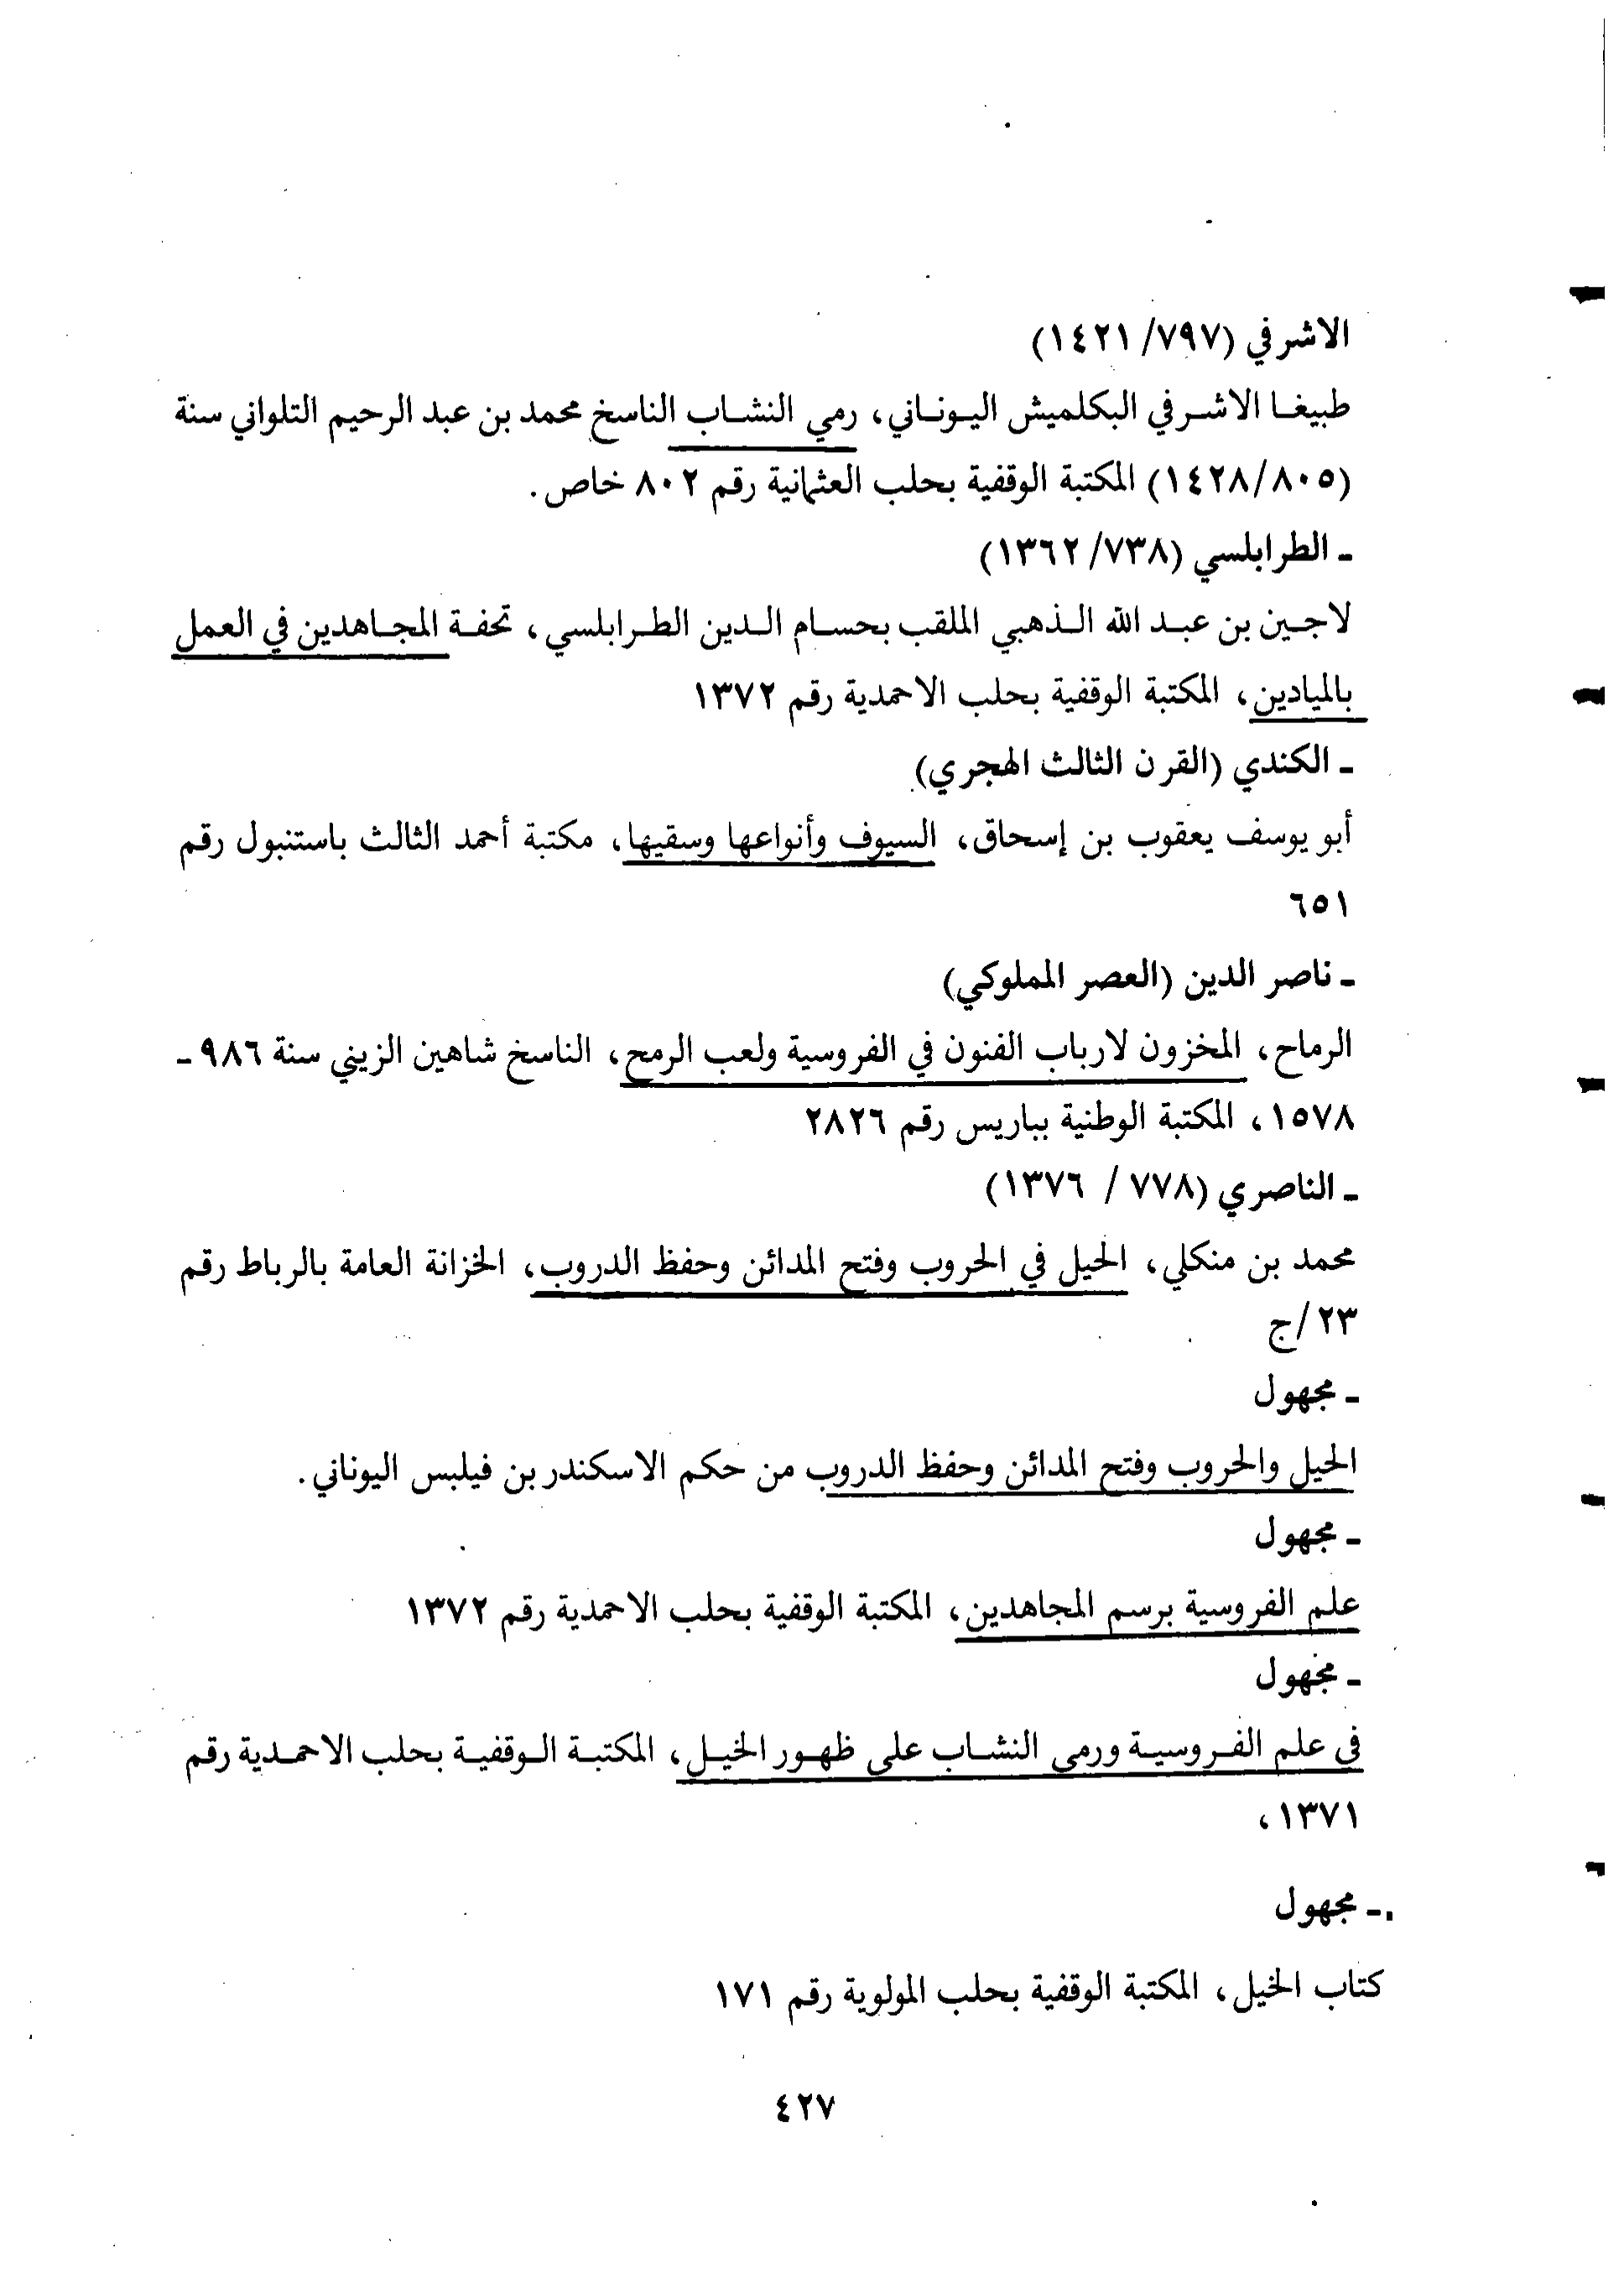 الاشرفي (٧٩٧/ ١٤٢١)
طبيغا الاشرفي البكلميش اليوناني، رمي النشاب الناسخ محمد بن عبد الرحيم التلواني سنة
(١٤٢٨/٨٠٥) المكتبة الوقفية بحلب العثمانية رقم ٨٠٢ خاص.
ـ الطرابلسي (٧٣٨/ ١٣٦٢)
لاجين بن عبد الله الذهبي الملقب بحسام الدين الطرابلسي، تحفة المجاهدين في العمل
بالميادين، المكتبة الوقفية بحلب الاحمدية رقم ١٣٧٢
ـ الكندي (القرن الثالث الهجري)
أبو يوسف يعقوب بن إسحاق، السيوف وأنواعها وسقيها، مكتبة أحمد الثالث باستنبول رقم
٦٥١
ـ ناصر الدين (العصر المملوكي)
الرماح، المخزون لارباب الفنون في الفروسية ولعب الرمح، الناسخ شاهين الزيني سنة ٩٨٦ ـ
١٥٧٨، المكتبة الوطنية بباريس رقم ٢٨٢٦
ـ الناصري (٧٧٨ / ١٣٧٦)
محمد بن منكلي، الحيل في الحروب وفتح المدائن وحفظ الدروب، الخزانة العامة بالرباط رقم
٢٣/ج
ـ مجهول
الحيل والحروب وفتح المدائن وحفظ الدروب من حكم الاسكندر بن فيلبس اليوناني.
ـ مجهول
علم الفروسية برسم المجاهدين، المكتبة الوقفية بحلب الاحمدية رقم ١٣٧٢
ـ مجهول
في علم الفروسية ورمي النشاب على ظهور الخيل، المكتبة الوقفية بحلب الاحمدية رقم
١٣٧١،
ـ مجهول
كتاب الخيل، المكتبة الوقفية بحلب المولوية رقم ١٧١
٤٢٧